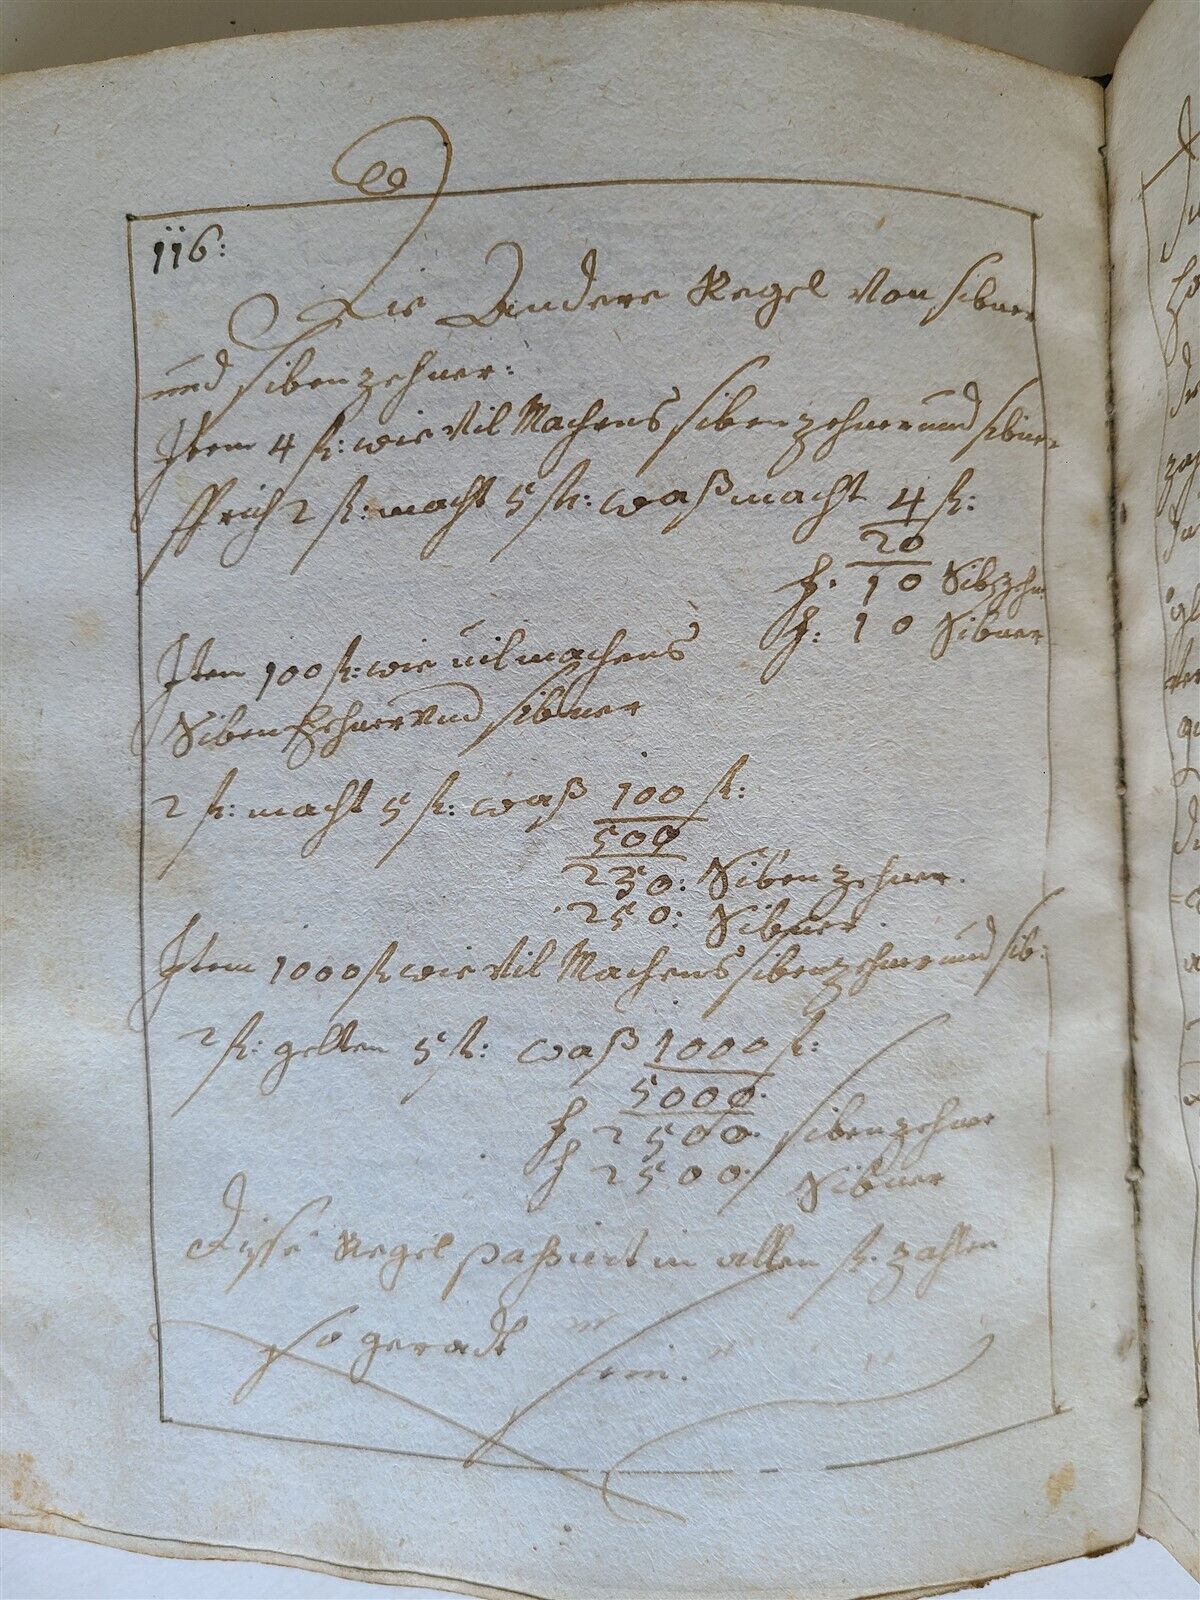 116:
Die Andere Regel Von sibner
und sibenzehner:
Item 4 fl: wie Vil Machens sibenzehner und sibner
sprich 2 fl: macht 5 fl: waß macht 4 fl:
20
f. 10 Sibzehn
f: 10 Sibner
Item 100 fl: wie uil machens
Siben Zehner Vnd sibner
2 fl: macht 5 fl: waß 100 fl:
500
250: Sibenzehner.
250: Sibner.
Item 1000 fl wie Vil Machens sibenzehner und sib:
2 fl: gelten 5 fl: waß 1000 fl:
5000.
f 2500. sibenzehner
f 2500. Sibner
Disse Regel passiert in allen fl. zahlen
so geradt sein.